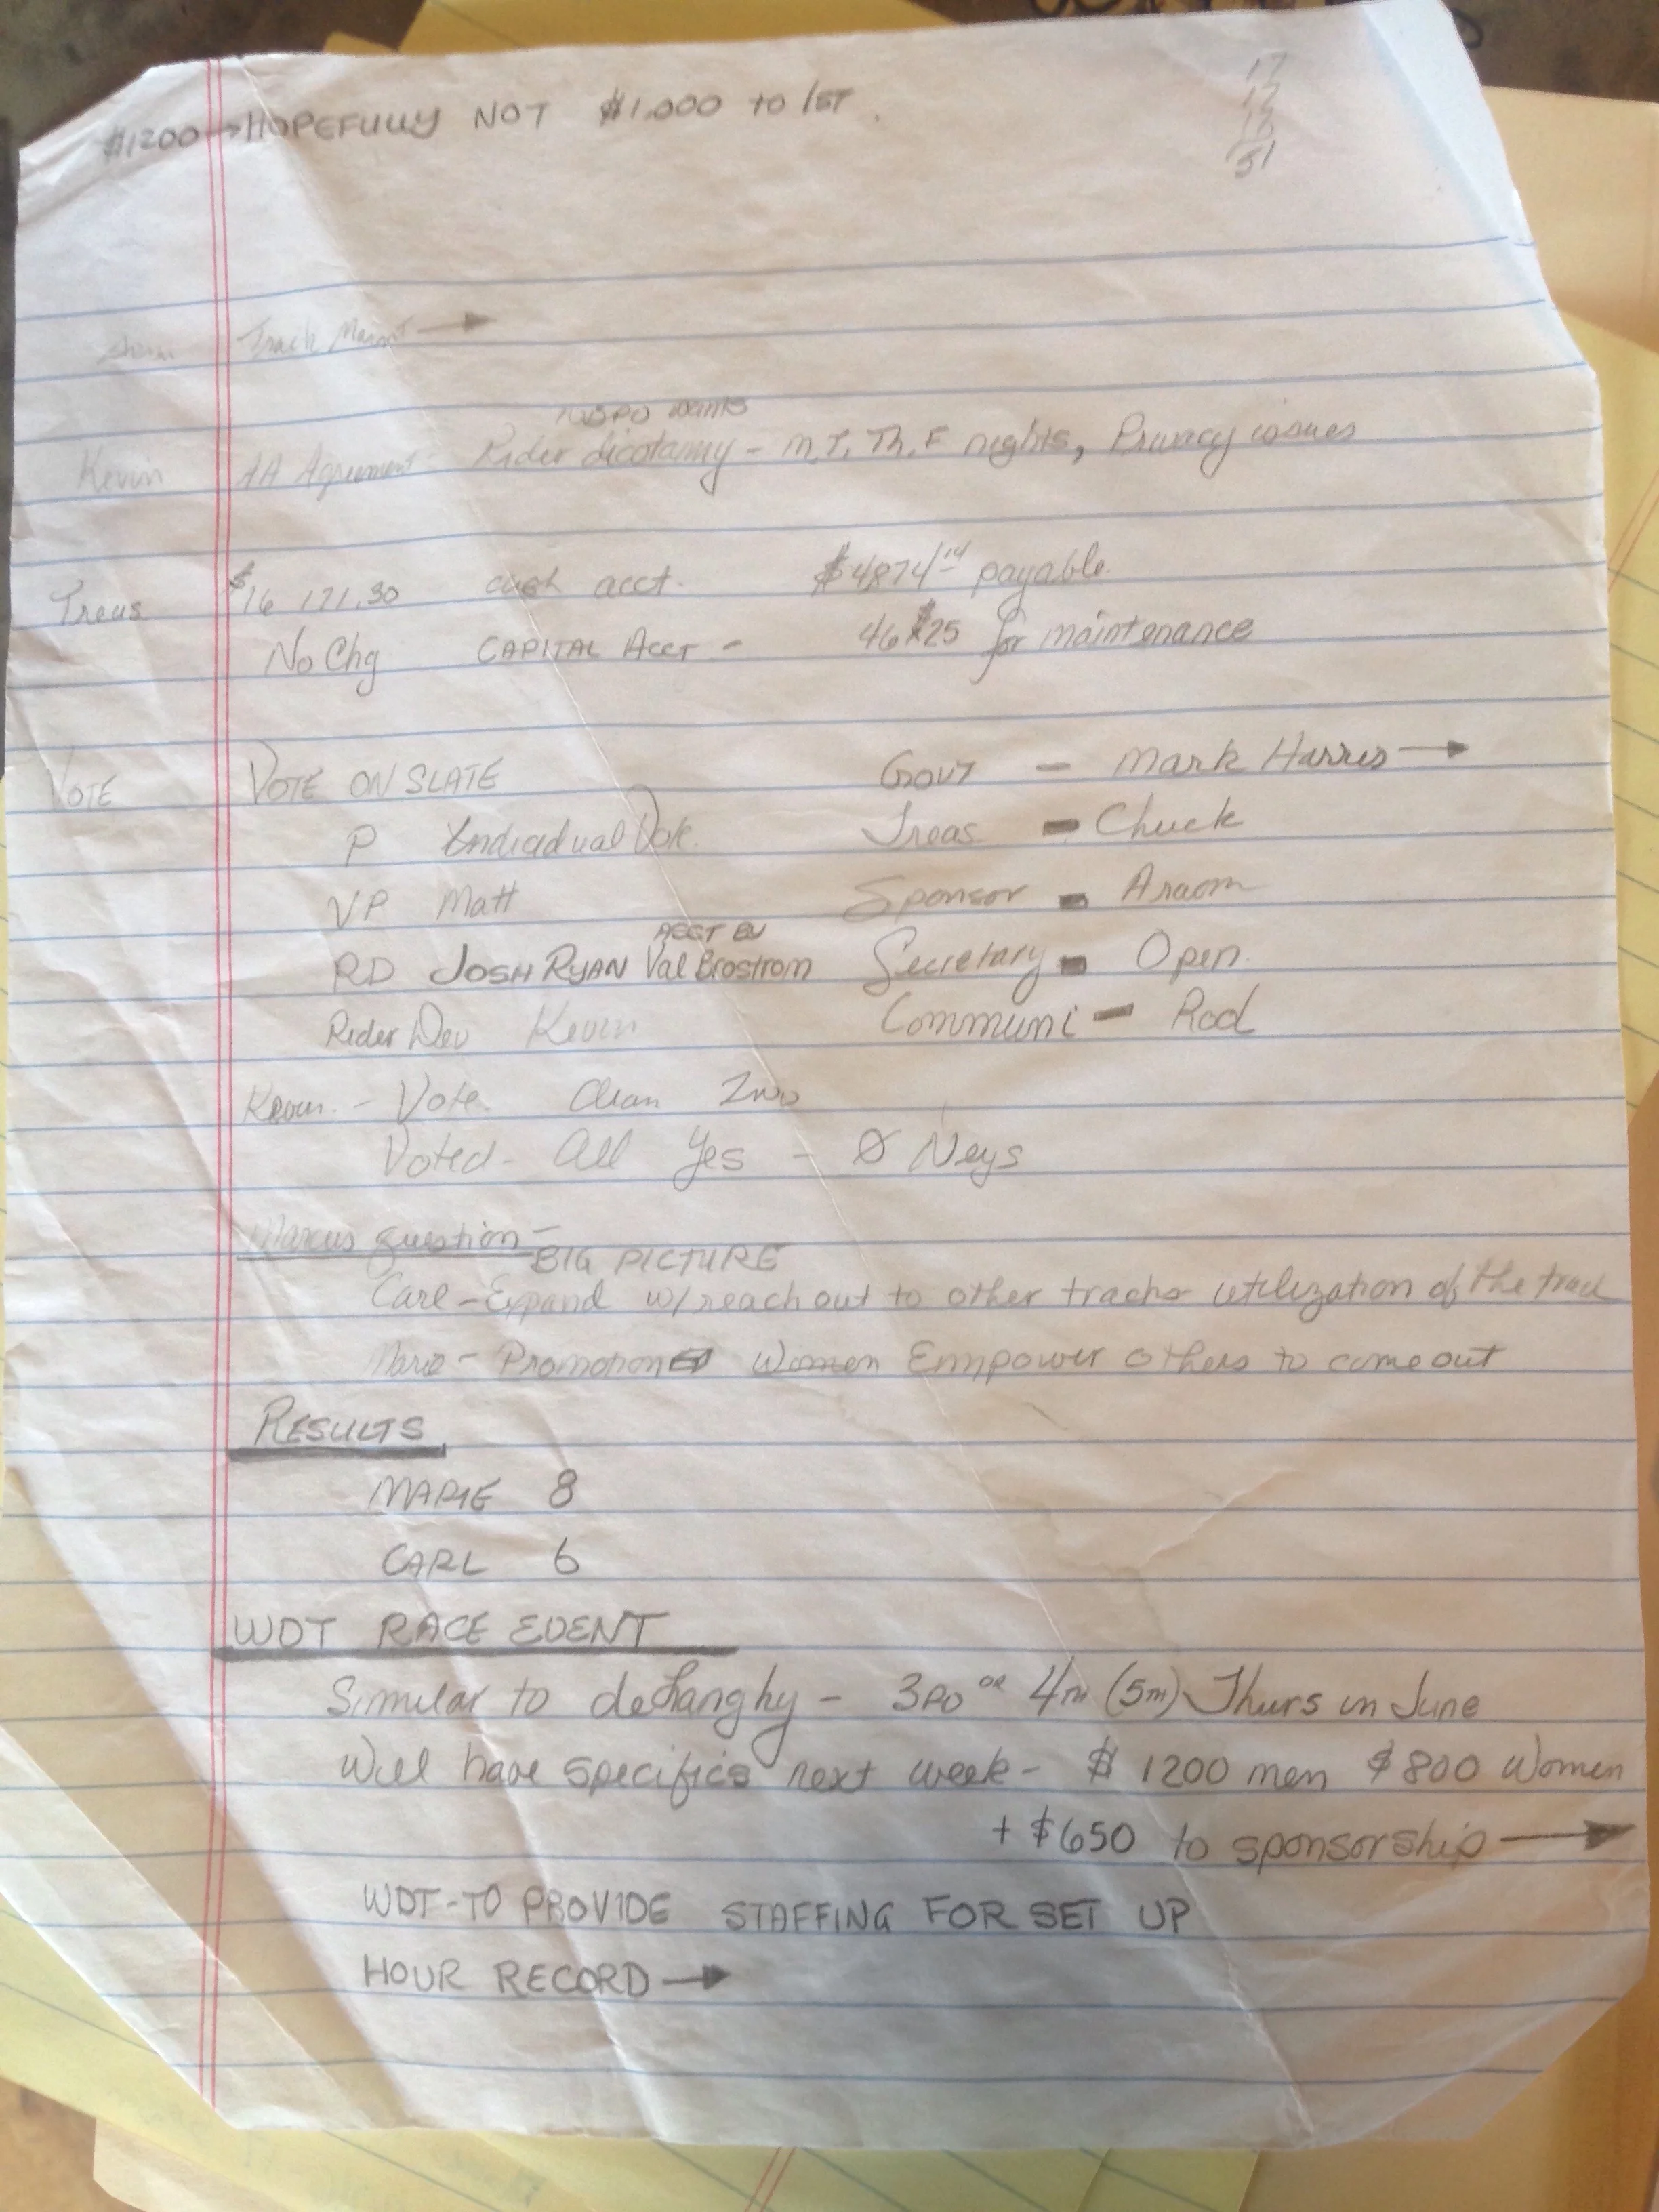 $1200→HOPEFULLY NOT $1,000 TO 1ST.
17
17
51
Track Maint →
wants
Kevin AA Agreement - Rider dicotamy - M, T, Th, F nights, Privacy issues
Treas $16 171.30 cash acct. $4874.14 payable
No Chg CAPITAL ACCT - for maintenance
VOTE VOTE ON SLATE GOVT - Mark Harris →
P Individual Vote. Treas - Chuck
VP Matt Sponsor -
RD JOSH RYAN Val Brostrom Secretary - Open.
Rider Dev Kevin Communi - Rod
Kevin - Vote. 2nd
Voted - All Yes - Ø Neys
Marcus question -
BIG PICTURE
Carl - Expand w/ reach out to other tracks utilization of the track
Marie - Promotion Women Empower others to come out
RESULTS
MARIE 8
CARL 6
WDT RACE EVENT
Similar to - 3RD OR 4TH (5TH) Thurs in June
Will have specifics next week - $1200 men $800 Women
+ $650 to sponsorship →
WDT - TO PROVIDE STAFFING FOR SET UP
HOUR RECORD →